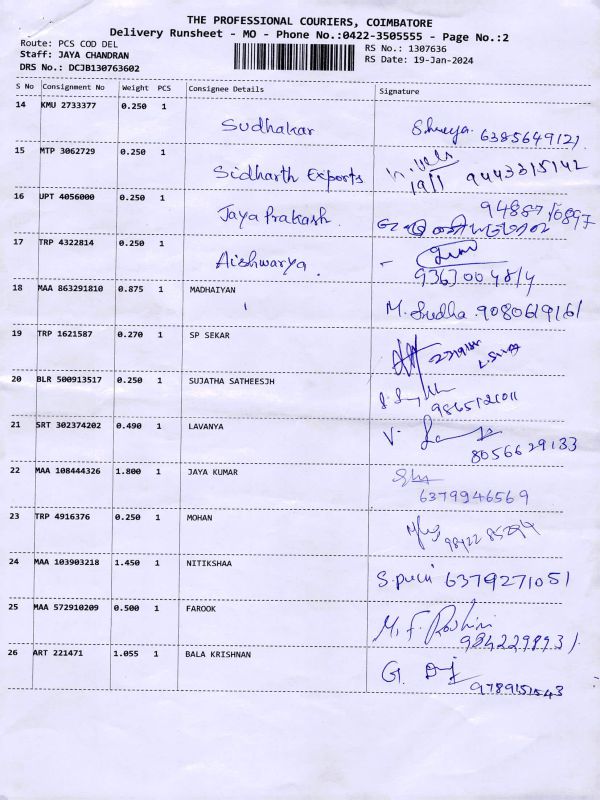 THE PROFESSIONAL COURIERS, COIMBATORE
Delivery Runsheet - MO - Phone No.:0422-3505555 - Page No.:2
Route: PCS COD DEL
RS No.: 1307636
Staff: JAYA CHANDRAN
RS Date: 19-Jan-2024
DRS No.: DCJB130763602
S No Consignment No Weight PCS Consignee Details Signature
14 KMU 2733377 0.250 1 Sudhakar Shreya 6385649121
15 MTP 3062729 0.250 1 Sidharth Exports 19/1 9443315142
16 UPT 4056000 0.250 1 Jaya Prakash.
17 TRP 4322814 0.250 1 Aishwarya.
18 MAA 863291810 0.875 1 MADHAIYAN M. Sudha 9080619161
19 TRP 1621587 0.270 1 SP SEKAR
20 BLR 500913517 0.250 1 SUJATHA SATHEESJH
21 SRT 302374202 0.490 1 LAVANYA V. 8056629133
22 MAA 108444326 1.800 1 JAYA KUMAR 6379946569
23 TRP 4916376 0.250 1 MOHAN
24 MAA 103903218 1.450 1 NITIKSHAA 6379271051
25 MAA 572910209 0.500 1 FAROOK M. F. Roshini 9842298931
26 ART 221471 1.055 1 BALA KRISHNAN G.